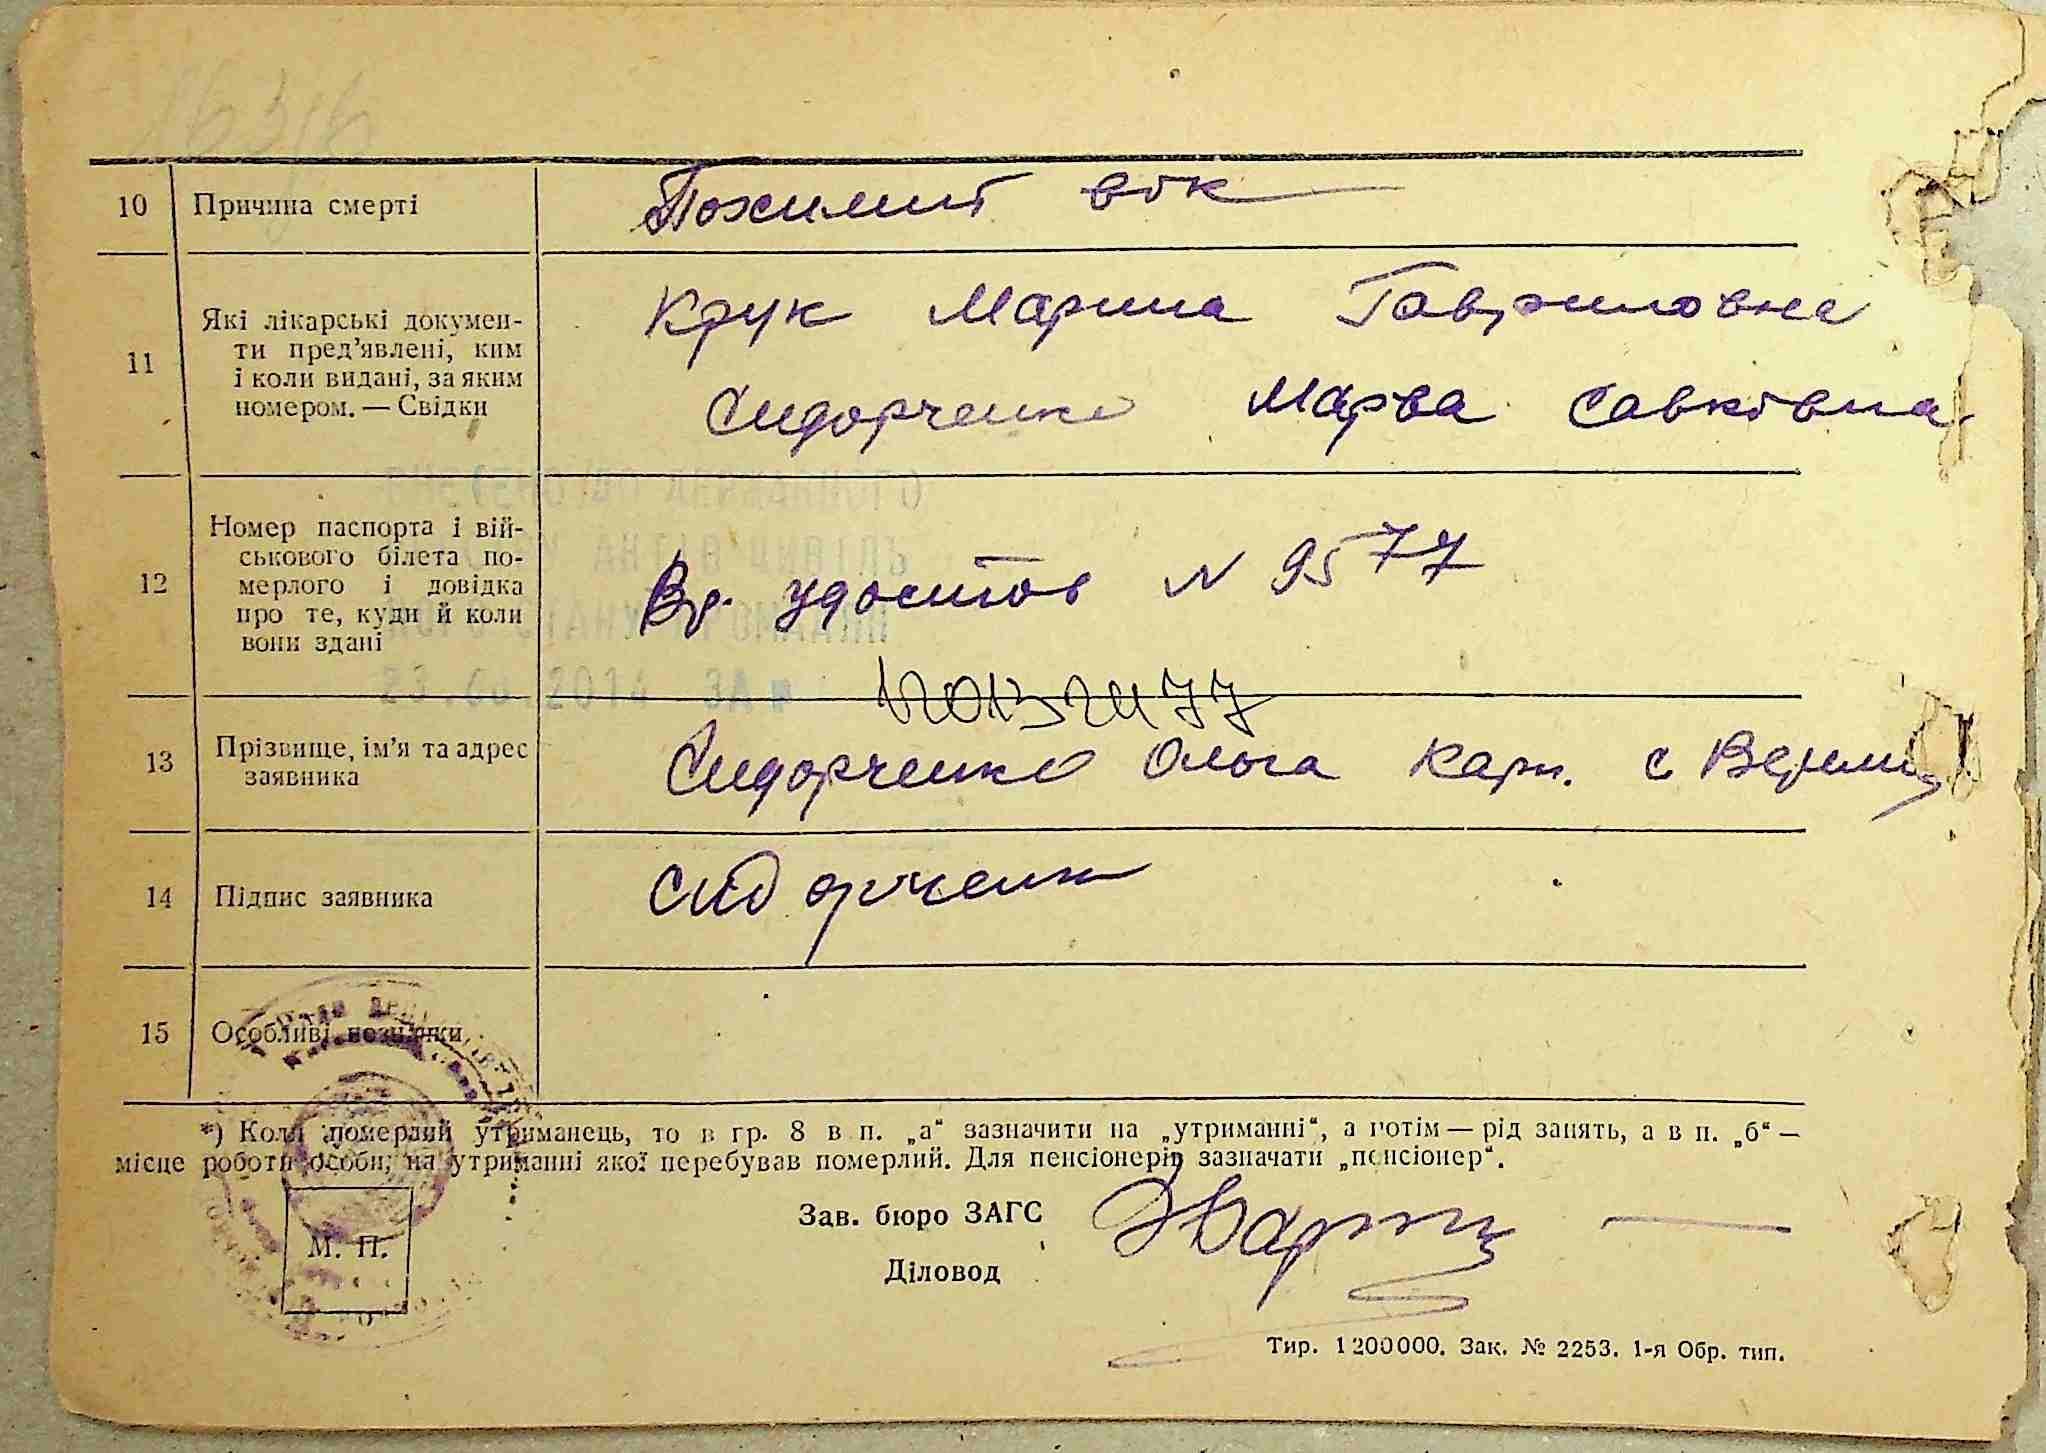 10 Причина смерті Похилий вік
11 Які лікарські докумен-
ти пред'явлені, ким
і коли видані, за яким
номером. — Свідки
Крук Марина Гавриловна
Сидорченко Марва Савківна
12 Номер паспорта і вій-
ськового білета по-
мерлого і довідка
про те, куди й коли
вони здані
Вр. удостов N 9577
ВНЕСЕНО ДО ДЕРЖАВНОГО
АКТІВ ЦИВІЛЬ
НОГО СТАНУ ГРОМАДЯН
ЗА №
13 Прізвище, ім'я та адрес
заявника
Сидорченко Ольга Карп. с
14 Підпис заявника Сидорченк
15 Особливі позначки
*) Коли померлий утриманець, то в гр. 8 в п. „а“ зазначити на „утриманні“, а потім — рід занять, а в п. „б“ —
місце роботи особи, на утриманні якої перебував померлий. Для пенсіонерів зазначати „пенсіонер“.
Зав. бюро ЗАГС
М. П.
Діловод
Тир. 1200000. Зак. № 2253. 1-я Обр. тип.